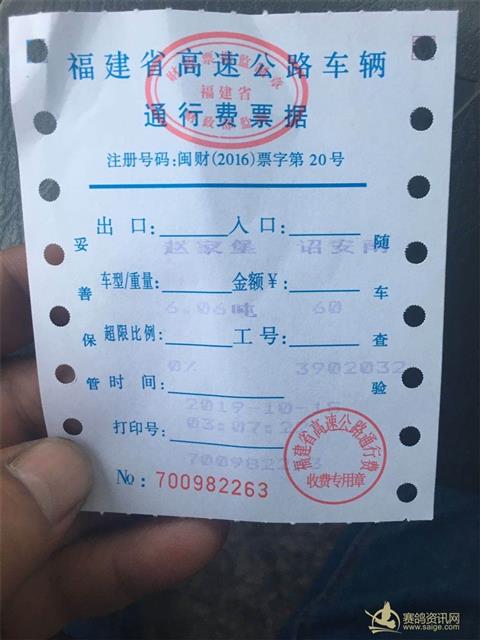 福建省高速公路车辆
通行费票据
福建省
注册号码:闽财(2016)票字第20号
出口: 入口:
赵家堡 诏安南
车型/重量: 金额¥:
6.06吨 60
超限比例: 工号:
0% 3902032
时间:
2019-10-15
03:07:2
打印号:
700982263
No: 700982263
妥善保管
随车查验
福建省高速公路通行费
收费专用章
赛鸽资讯网
www.saige.com